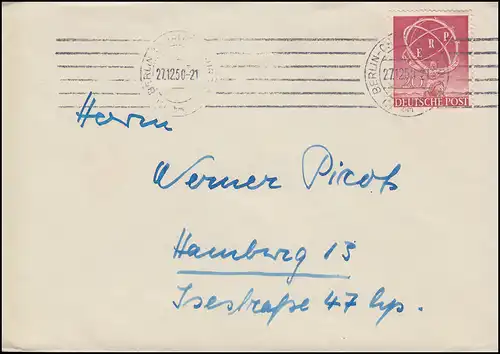 BERLIN-C
27.12.50-21
BERLIN-C
27.12.50-21
ERP
DEUTSCHE POST
Herrn
Werner
Hamburg 13
Isestraße 47 hp.